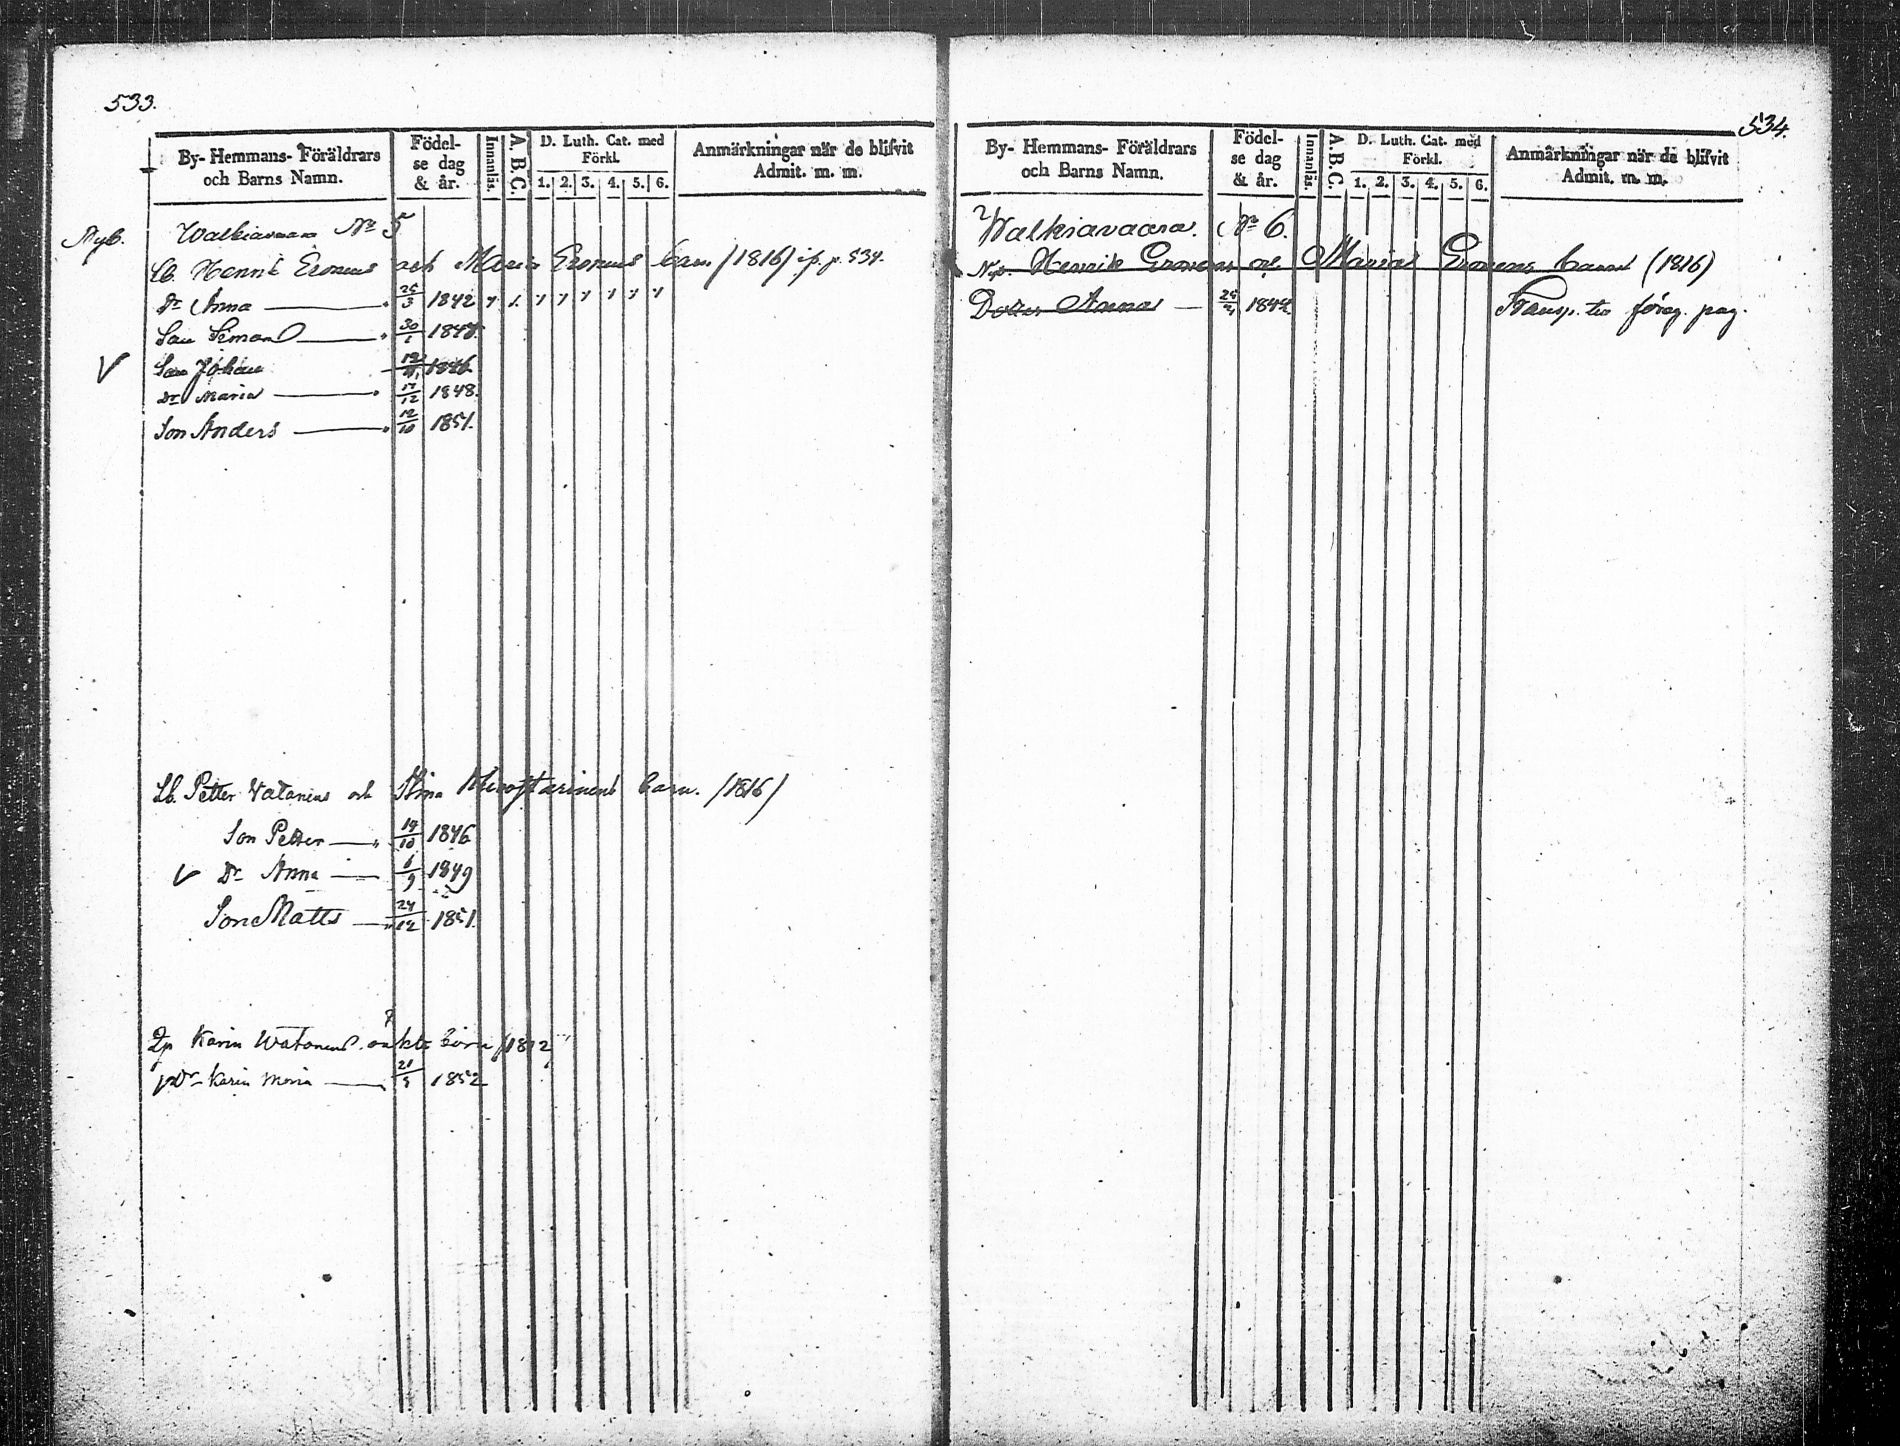 533.
By- Hemmans- Föräldrars och Barns Namn.
Födelse dag & år.
Innanläs.
A. B. C.
D. Luth. Cat. med Förkl.
1. 2. 3. 4. 5. 6.
Anmärkningar när de blifvit Admit. m. m.
Nyb.
Walkiavaara No 5
Lb. Henrik Eronens och Maria Eronens barn (1816) if. p. 534.
Dr Anna 25/3 1842
Son Simon 30/1 1844.
Son Johan 1846
Dr Maria 17/12 1848.
Son Anders 12/10 1851.
Lb. Petter Vatanens och Stina barn. (1816)
Son Petter 14/10 1846
Dr Anna 6/9 1849
Son Matts 24/12 1851.
Karin Watonens oäkta barn (1812
Dr Karin Maria 21/5 1852
534.
By- Hemmans- Föräldrars och Barns Namn.
Födelse dag & år.
Innanläs.
A. B. C.
D. Luth. Cat. med Förkl.
1. 2. 3. 4. 5. 6.
Anmärkningar när de blifvit Admit. m. m.
Walkiavaara. No 6.
Nyb. Henrik Eronens och Maria Eronens barn (1816)
Dotter Anna 1842 Transp. till föreg. pag.